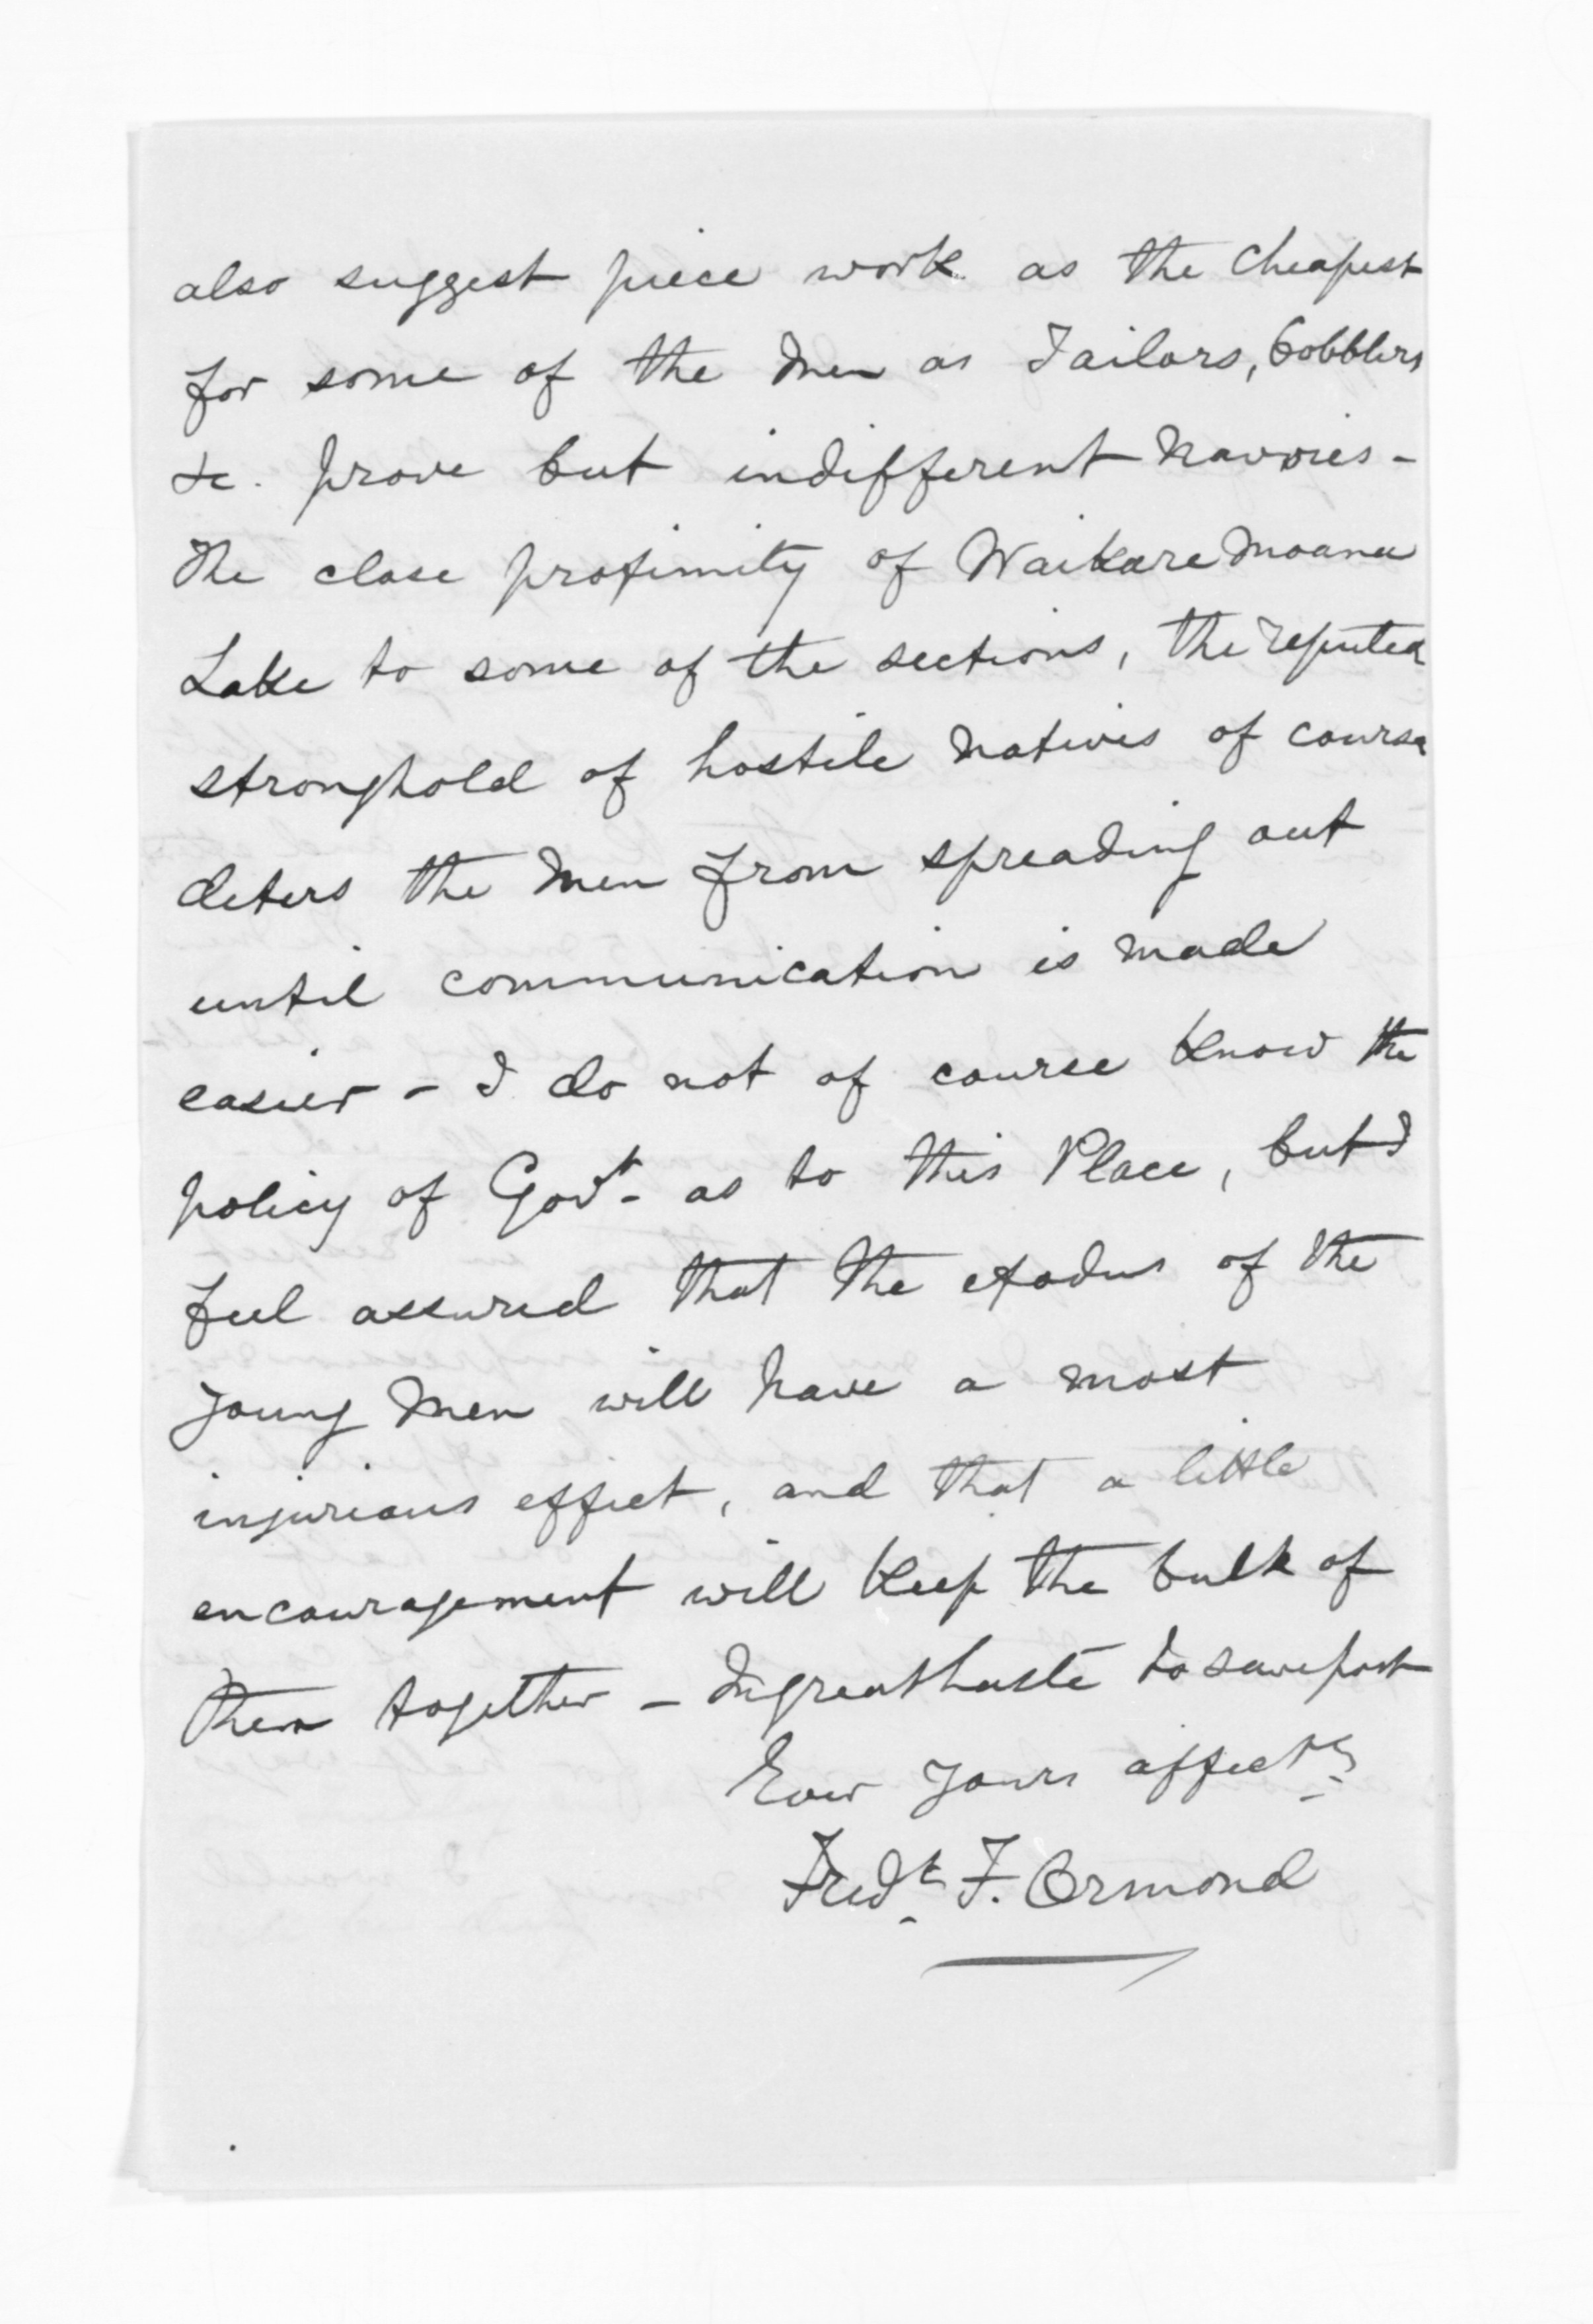 also suggest piece work as the Cheapest
for some of the Men as Tailors, Cobblers
&c. prove but indifferent Navvies -
The close proximity of Waikare Moana
Lake to some of the sections, the reputed
stronghold of hostile Natives of course
deters the Men from spreading out
until communication is made
easier - I do not of course know the
policy of Govt. as to this Place, but I
feel assured that the exodus of the
young Men will have a most
injurious effect, and that a little
encouragement will keep the bulk of
them together - In great haste to save post
Ever yours affectly
Fredk. F. Ormond